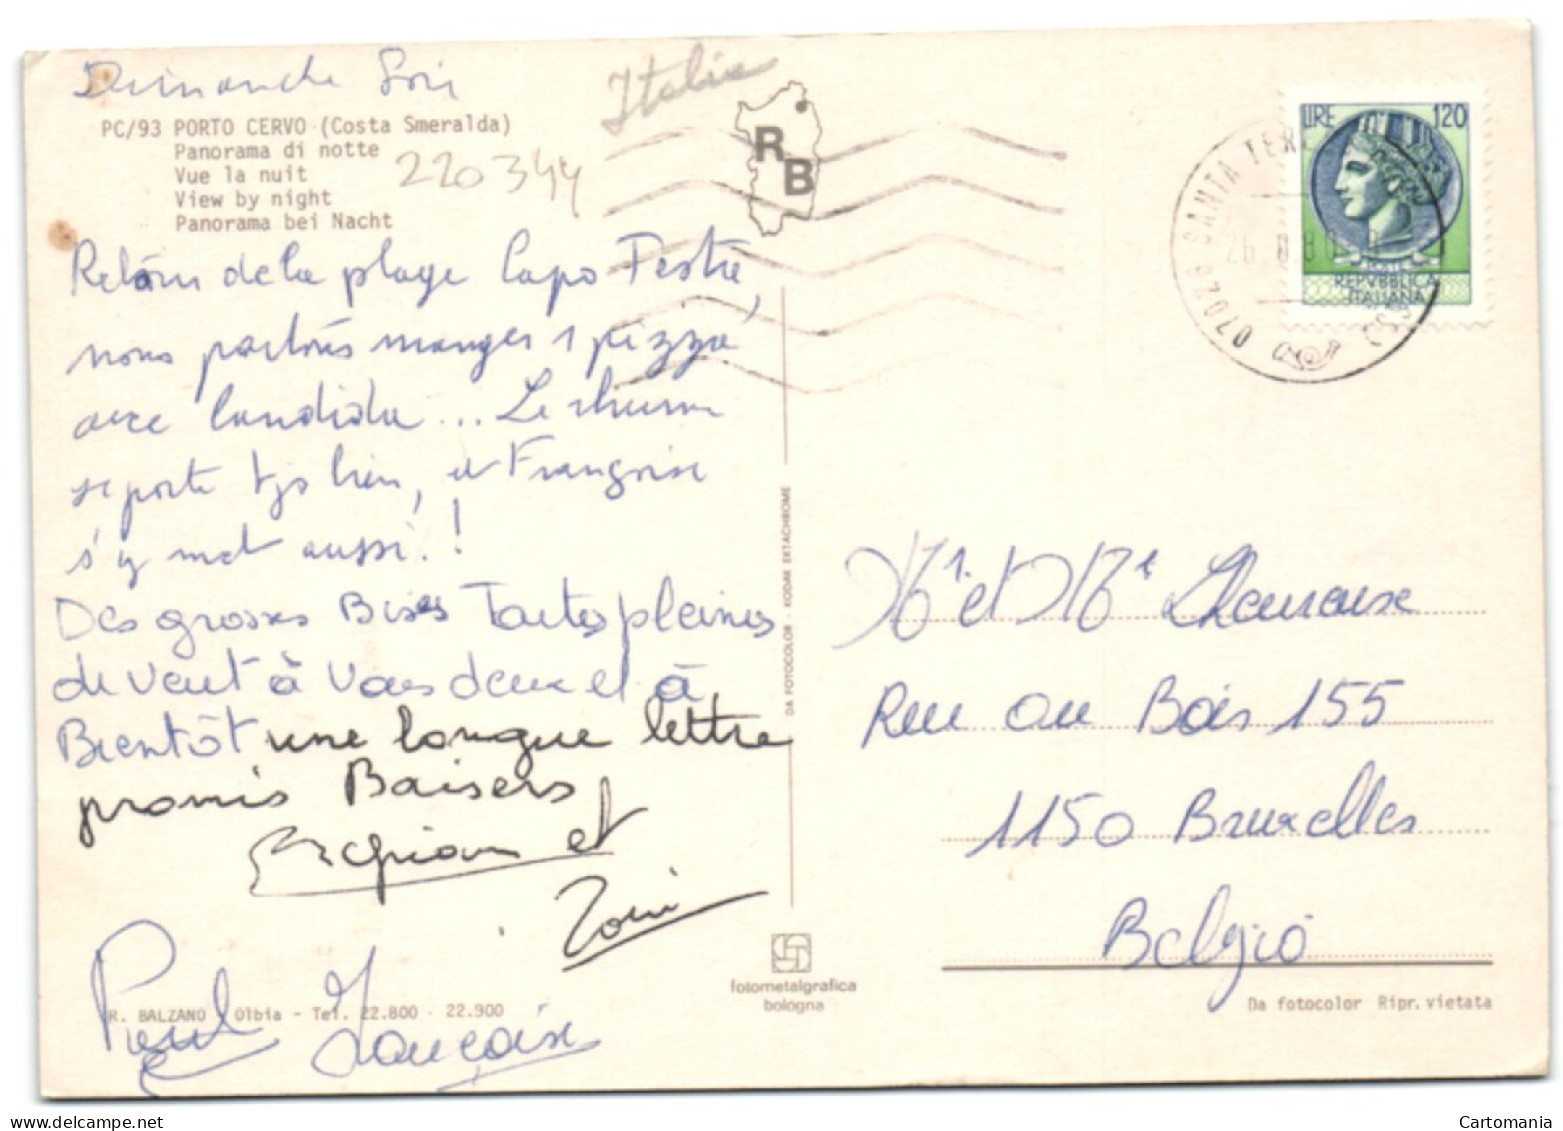 Dimanche Soir
Italia
PC/93 PORTO CERVO (Costa Smeralda)
Panorama di notte
Vue la nuit
View by night
Panorama bei Nacht
220344
R
B
Retour de la plage Capo Testa,
nous partons manger 1 pizza
avec Candida ... Le rhume
se porte tjs bien, et Françoise
s'y met aussi. !
Des grosses Bises Toutes pleines
de vent à vous deux et à
Bientôt une longue lettre
promis Baisers
et
Paul Françoise
R. BALZANO Olbia - Tel. 22.800 - 22.900
DA FOTOCOLOR - KODAK EKTACHROME
fotometalgrafica
bologna
LIRE 120
POSTE
REPVBBLICA
ITALIANA
07028 SANTA TER
(SS)
Mr et Me
Rue au Bois 155
1150 Bruxelles
Belgio
Da fotocolor Ripr. vietata
Cartomania